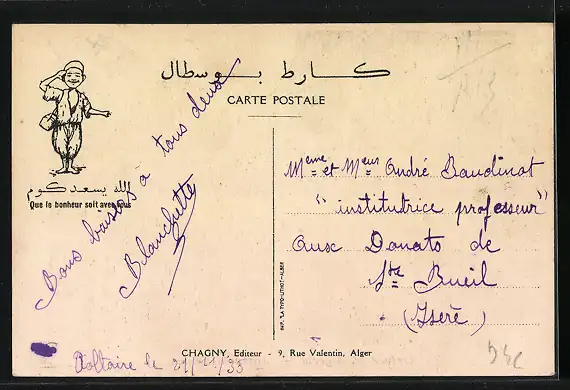 كارط بوسطال
CARTE POSTALE
الله يسعدكوم
Que le bonheur soit avec vous
Bons baisers à tous deux
Blanchette
Voltaire le 21/11/35
Meme et Meur André Baudinot
"institutrice professeur"
Aux Donato de
Ste Bueil
(Isère)
IMP. "LA TYPO-LITHO"-ALGER
CHAGNY, Editeur - 9, Rue Valentin, Alger